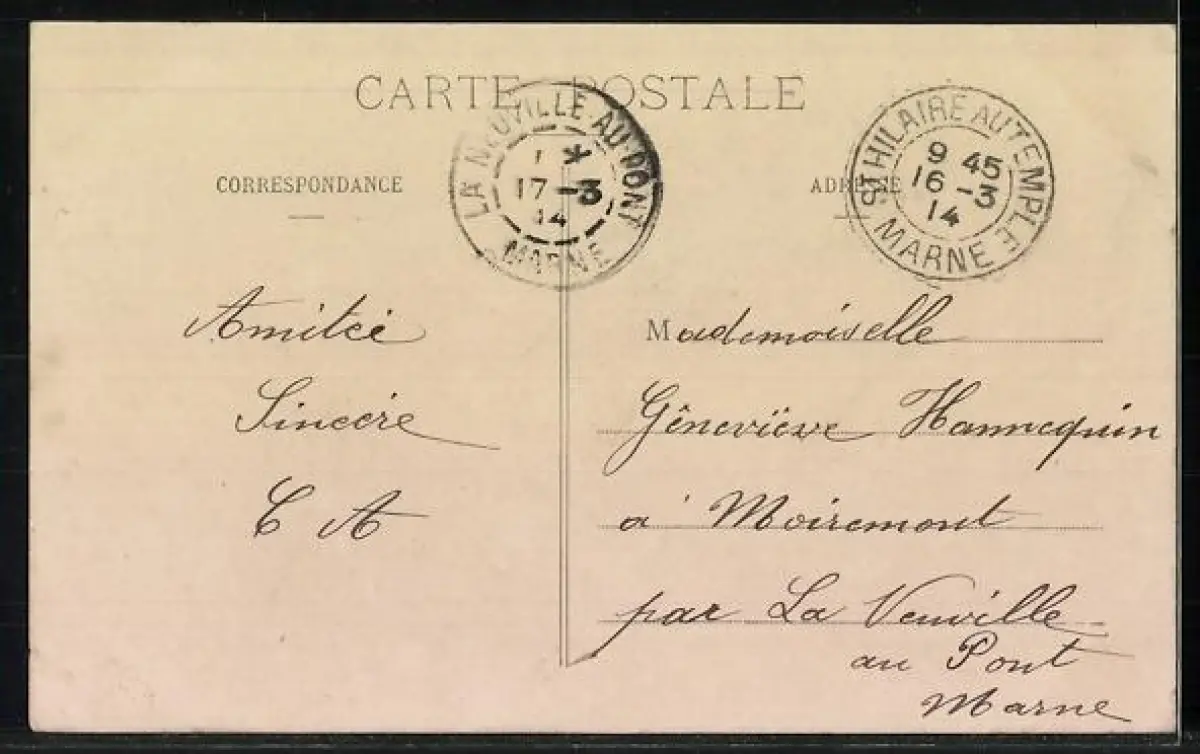 CARTE POSTALE
CORRESPONDANCE
LA NEUVILLE-AU-PONT
1 *
17 -3
14
MARNE
ADRESSE
ST HILAIRE AU TEMPLE
9 45
16 -3
14
MARNE
Amitié
Sincère
C A
Mademoiselle
Gêneviève Hannequin
à Moiremont
par La Neuville
au Pont
Marne